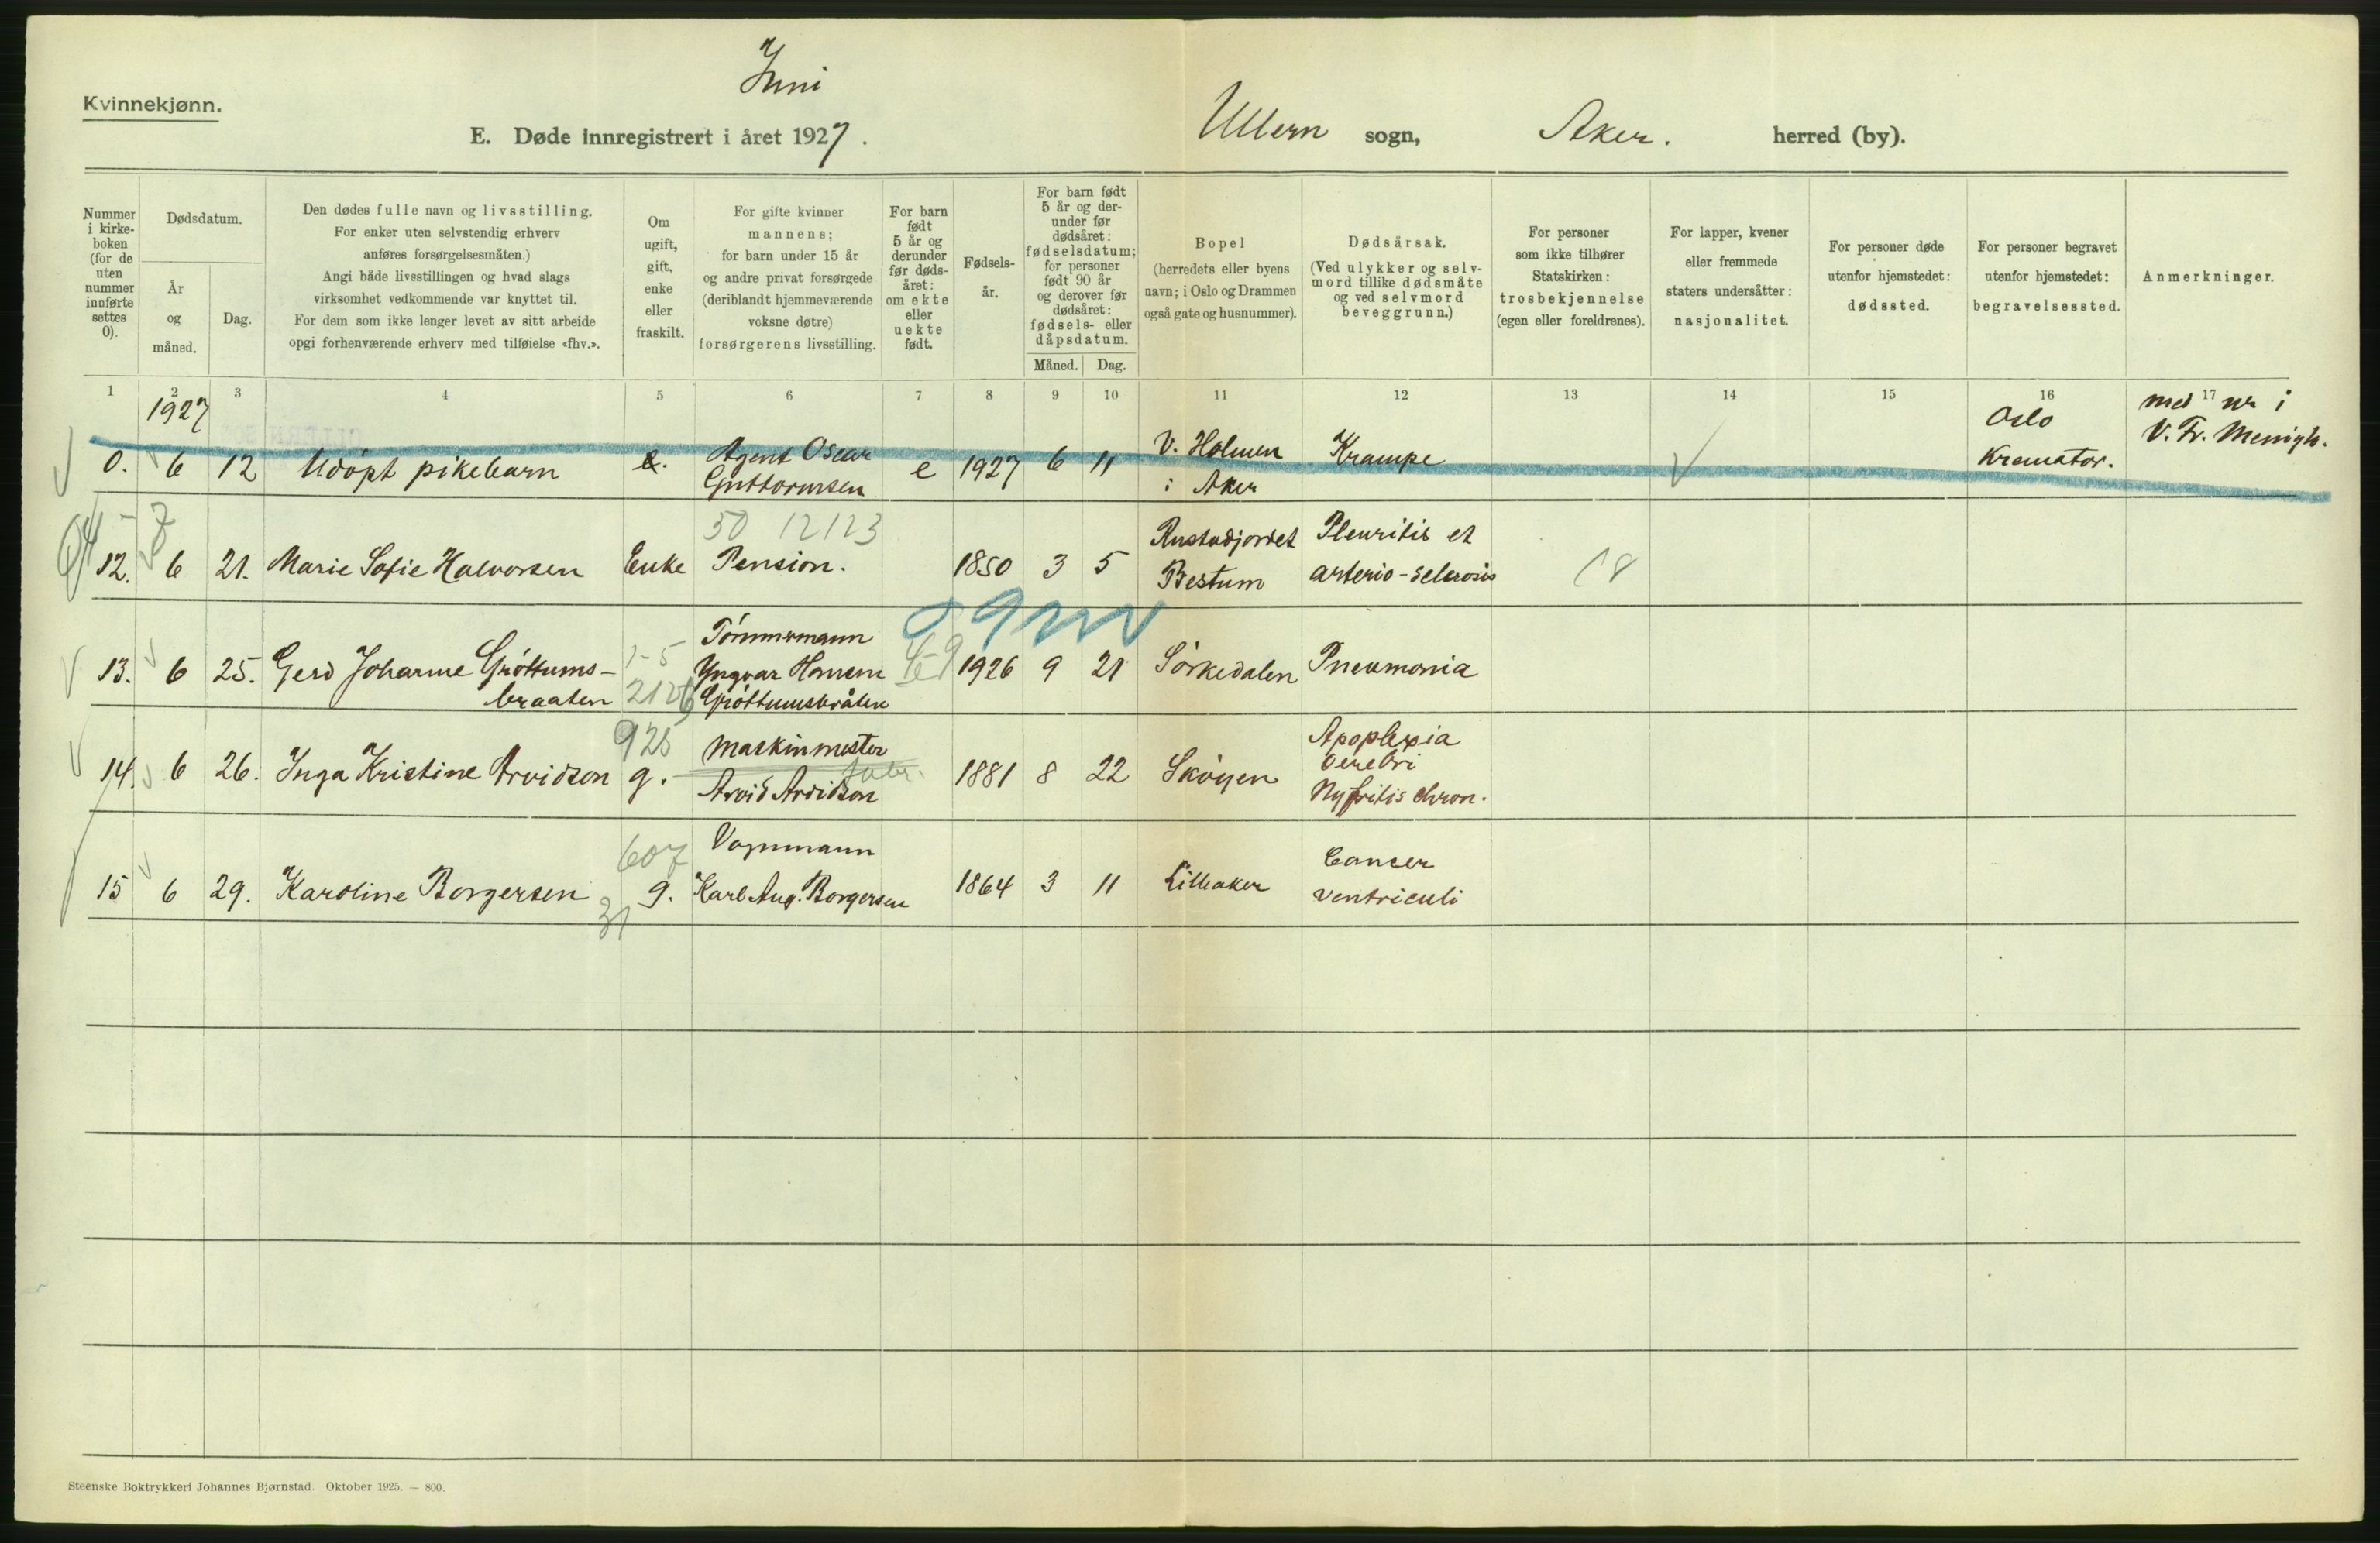 Juni
Kvinnekjønn.
E. Døde innregistrert i året 1927.
Ullern sogn, Aker. herred (by).
Nummer i kirke-boken (for de uten nummer innførte settes 0).
Dødsdatum.
År og måned.
Dag.
Den dødes fulle navn og livsstilling.
For enker uten selvstendig erhverv
anføres forsørgelsesmåten.)
Angi både livsstillingen og hvad slags
virksomhet vedkommende var knyttet til.
For dem som ikke lenger levet av sitt arbeide
opgi forhenværende erhverv med tilføielse «fhv.».
Om
ugift,
gift,
enke
eller
fraskilt.
For gifte kvinner
mannens;
for barn under 15 år
og andre privat forsørgede
(deriblandt hjemmeværende
voksne døtre)
forsørgerens livsstilling.
For barn
født
5 år og
derunder
før døds-
året:
om ekte
eller
uekte
født.
Fødsels-
år.
For barn født
5 år og der-
under før
dødsåret:
fødselsdatum;
for personer
født 90 år
og derover før
dødsåret:
fødsels- eller
dåpsdatum.
Måned. Dag.
Bopel
(herredets eller byens
navn; i Oslo og Drammen
også gate og husnummer).
Dødsårsak.
(Ved ulykker og selv-
mord tillike dødsmåte
og ved selvmord
beveggrunn.)
For personer
som ikke tilhører
Statskirken:
trosbekjennelse
(egen eller foreldrenes).
For lapper, kvener
eller fremmede
staters undersåtter:
nasjonalitet.
For personer døde
utenfor hjemstedet:
dødssted.
For personer begravet
utenfor hjemstedet:
begravelsessted.
Anmerkninger.
1 2 3 4 5 6 7 8 9 10 11 12 13 14 15 16 17
1927
0. 6 12 Udöpt pikebarn
Agent Oscar
Guttormsen
e 1927 6 11
V. Holmen
i Aker
Krampe
Oslo
Kremator.
med nr i
V. Fr. Menigh.
50 12123
12. 6 21. Marie Sofie Halvorsen Enke Pension. 1850 3 5
Rustadjordet
Bestum
Pleuritis et
arterio-sclerosis
18
13. 6 25. Gerd Johanne Gröttums-
braaten
1-5
2126
Tömmermann
Yngvar Hansen
Gröttumsbråten
1926 9 21 Sörkedalen Pneumonia
925
14. 6 26. Inga Kristine Arvidson g.
Maskinmester
fabr.
Arvid Arvidson
1881 8 22 Sköyen
Apoplexia
Cerebri
Nyfritis chron.
607
15 6 29. Karoline Borgersen 31 g.
Vognmann
Karl Aug. Borgersen
1864 3 11 Lilleaker
Cancer
ventriculi
Steenske Boktrykkeri Johannes Bjørnstad. Oktober 1925. — 800.